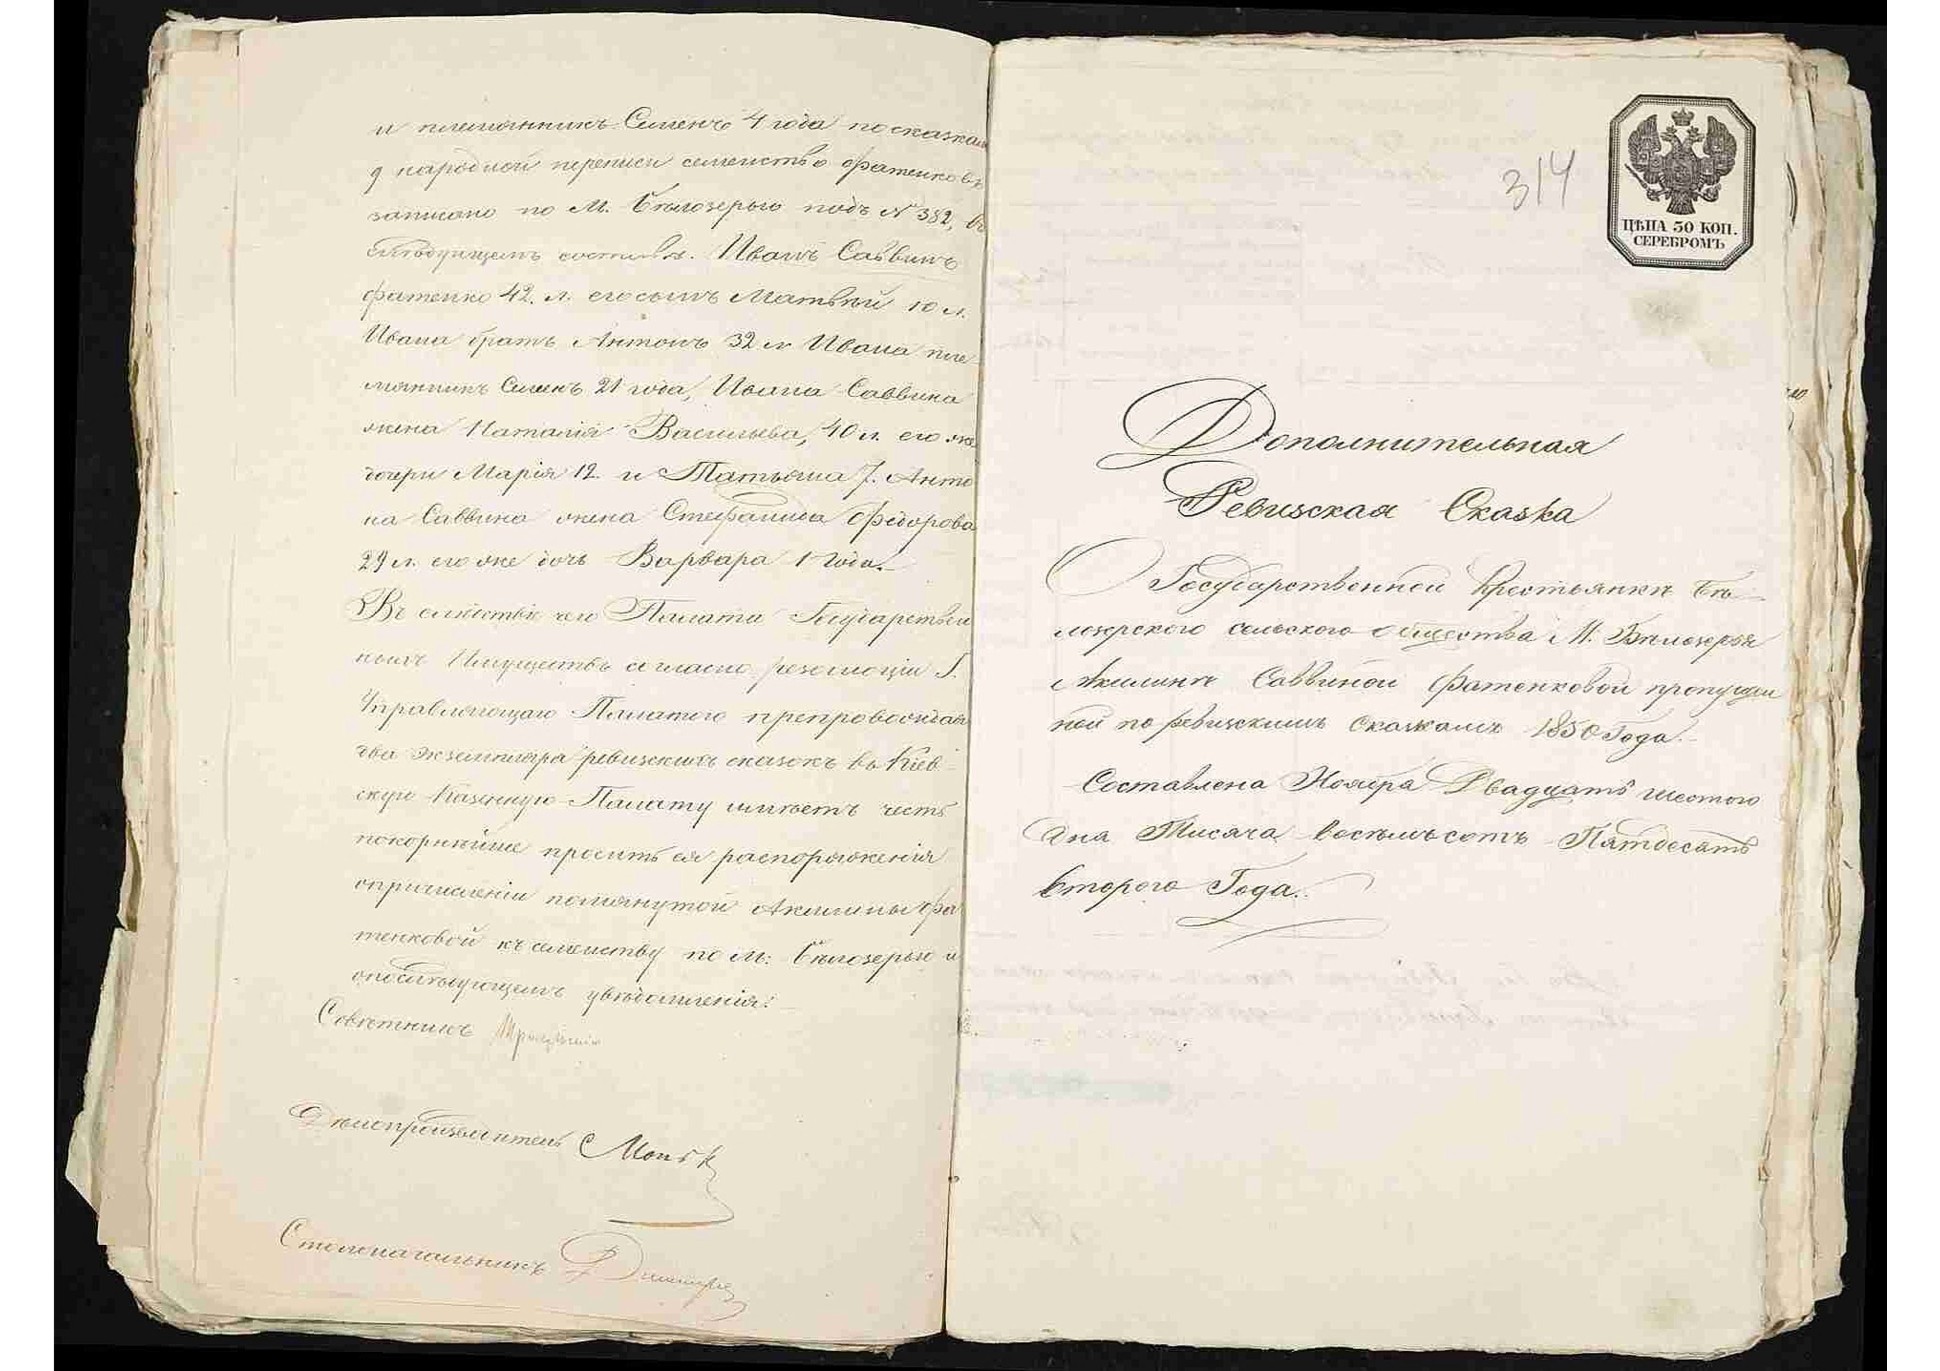 и племянникъ Семенъ 4 года по сказкамъ
9 народной переписи семейство Фатенковъ
записано по М. Бѣлозерью подъ № 382, въ
слѣдующемъ составѣ. Иванъ Саввинъ
Фатенко 42. л. его сынъ Матвѣй 10 л.
Ивана братъ Антонъ 32 л Ивана пле
мянникъ Семенъ 21 года, Ивана Саввина
жена Наталія Васильева, 40 л. его же
дочери Марія 12. и Татьяна 7. Анто
на Саввина жена Стефанида Федорова
29 л. его же дочь Варвара 1 года.
Въ слѣдствіе чего Палата Государствен
ныхъ Имуществъ согласно резолюціи Г.
Управляющаго Палатою препровождая
два экземпляра ревизскихъ сказокъ въ Кіев
скую Казенную Палату имѣетъ честь
покорнѣйше просить ея распоряженія
о причисленіи помянутой Акилины Фа
тенковой къ семейству по М: Бѣлозерью и
о послѣдующемъ увѣдомленіи:
Совѣтникъ
Дѣлопроизводитель
Столоначальникъ
314
ЦѢНА 30 КОП.
СЕРЕБРОМЪ
Дополнительная
Ревизская Сказка
О Государственной Крестьянкѣ Бѣ
лозерского сельского общества М. Бѣлозерья
Акилинѣ Саввиной Фатенковой пропущен
ной по ревизскимъ Сказкамъ 1850 Года.
Составлена Ноября Двадцать шестого
дня Тысяча восемьсотъ Пятдесятъ
второго Года.